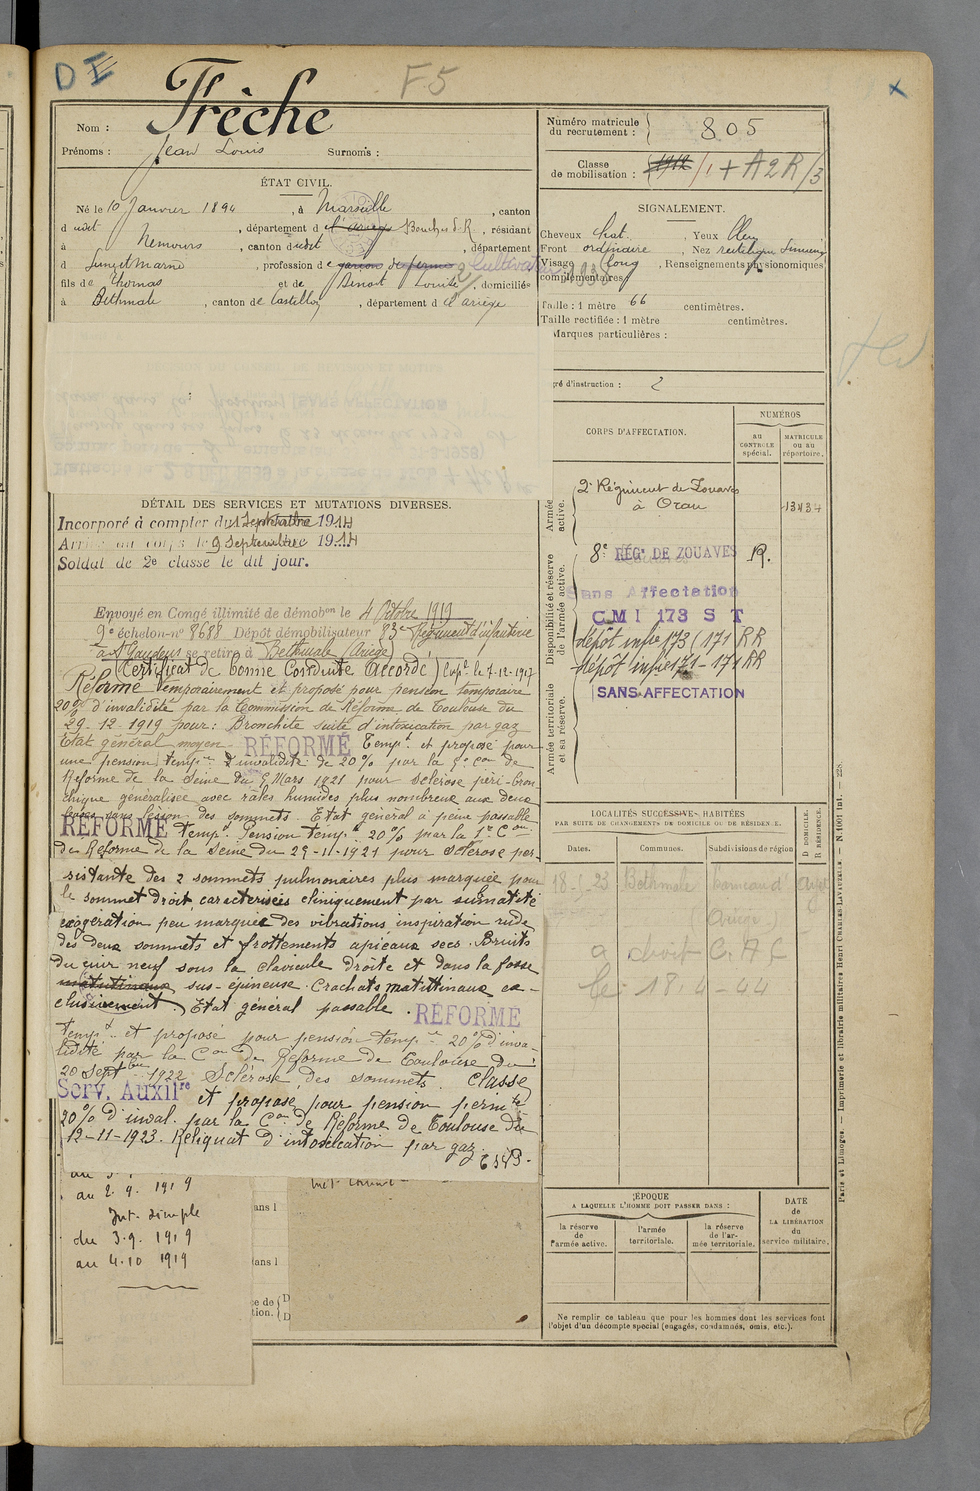 DE
F5
x
Nom : Frèche
Prénoms : Jean Louis Surnoms :
Numéro matricule du recrutement : 805
Classe de mobilisation : 1912 /1 + A2R/3
ÉTAT CIVIL.
Né le 10 Janvier 1894, à Marseille, canton
dudit, département d l'ariège Bouches d. R, résidant
à Nemours, canton dudit, département
d Seine et Marne, profession de garçon de ferme 2 Cultivateur 1938
fils de Thomas et de Benoit Louise, domiciliés
à Bethmale, canton de Castillon, département d l'ariège
SIGNALEMENT.
Cheveux chat., Yeux bleu
Front ordinaire, Nez rectiligne
Visage long, Renseignements physionomiques
complémentaires
Taille : 1 mètre 66 centimètres.
Taille rectifiée : 1 mètre centimètres.
Marques particulières :
gré d'instruction : 2
CORPS D'AFFECTATION.
NUMÉROS
AU CONTROLE spécial.
MATRICULE OU AU répertoire.
Armée active.
2e Régiment de Zouaves
à Oran
13434
Disponibilité et réserve de l'armée active.
8e RÉGt DE ZOUAVES R.
Sans Affectation
CMI 173 S T
dépôt infie 173/171 RR
dépôt infie 171-171 RR
Armée territoriale et sa réserve.
SANS AFFECTATION
DÉTAIL DES SERVICES ET MUTATIONS DIVERSES.
Incorporé à compter du 1 Septembre 1914
Arrivé au corps le 9 Septembre 1914
Soldat de 2e classe le dit jour.
Envoyé en Congé illimité de démobon le 4 Octobre 1919
9e échelon-no 8688 Dépôt démobilisateur 83e Régiment d'infanterie
à St Gaudens se retire à Bethmale (Ariège)
(Certificat de bonne Conduite Accordé)
Réformé temporairement et proposé pour pension temporaire
20% d'invalidité par la Commission de Réforme de Toulouse du
29-12-1919 pour : Bronchite suite d'intoxication par gaz
Etat général moyen - RÉFORMÉ Tempt. et proposé pour
une pension tempre d'invalidité de 20% par la Con de
Réforme de la Seine du 9 Mars 1921 pour sclérose péri-bron
chique généralisée avec râles humides plus nombreux aux deux
bases sans lésion des sommets. Etat général à peine passable
RÉFORMÉ Tempt. Pension tempre 20% par la 1e Con
de Réforme de la Seine du 29-11-1921 pour sclérose per-
sistante des 2 sommets pulmonaires plus marquée pour
le sommet droit, caractérisées cliniquement par submatité
exagération peu marquée des vibrations inspiration rude
des deux sommets et frottements apicaux secs. Bruits
du cuir neuf sous la clavicule droite et dans la fosse
matutinaux sus-épineuse. Crachats matittinaux ex-
clusivement. Etat général passable. RÉFORMÉ
Tempt et proposé pour pension tempre 20% d'inva-
lidité par la Con de Réforme de Toulouse du
20 Septbre 1922 Sclérose des sommets. Classé
Serv. Auxilre et proposé pour pension permte
20% d'inval. par la Con de Réforme de Toulouse du
12-11-1923. Reliquat d'intoxication par gaz.
au 2.9.1919
Int. simple
du 3.9.1919
au 4.10 1919
ans 1
ans 1
LOCALITÉS SUCCESSIVES HABITÉES
PAR SUITE DE CHANGEMENTS DE DOMICILE OU DE RÉSIDENCE.
Dates. Communes. Subdivisions de région D DOMICILE. R RÉSIDENCE.
Bethmale
Ariège
a droit C.A.C
le 18-4-44
ÉPOQUE
A LAQUELLE L'HOMME DOIT PASSER DANS :
la réserve de l'armée active.
l'armée territoriale.
la réserve de l'armée territoriale.
DATE de LA LIBÉRATION du service militaire.
Ne remplir ce tableau que pour les hommes dont les services font
l'objet d'un décompte spécial (engagés, condamnés, omis, etc.).
Paris et Limoges. — Imprimerie et librairie militaires Henri CHARLES-LAVAUZELLE. — N° 1001 Int. — 228.